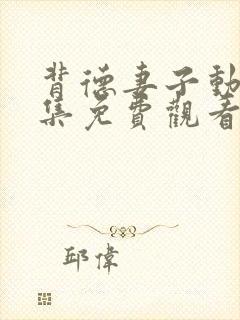 背德妻子動
集免費觀看
邱偉